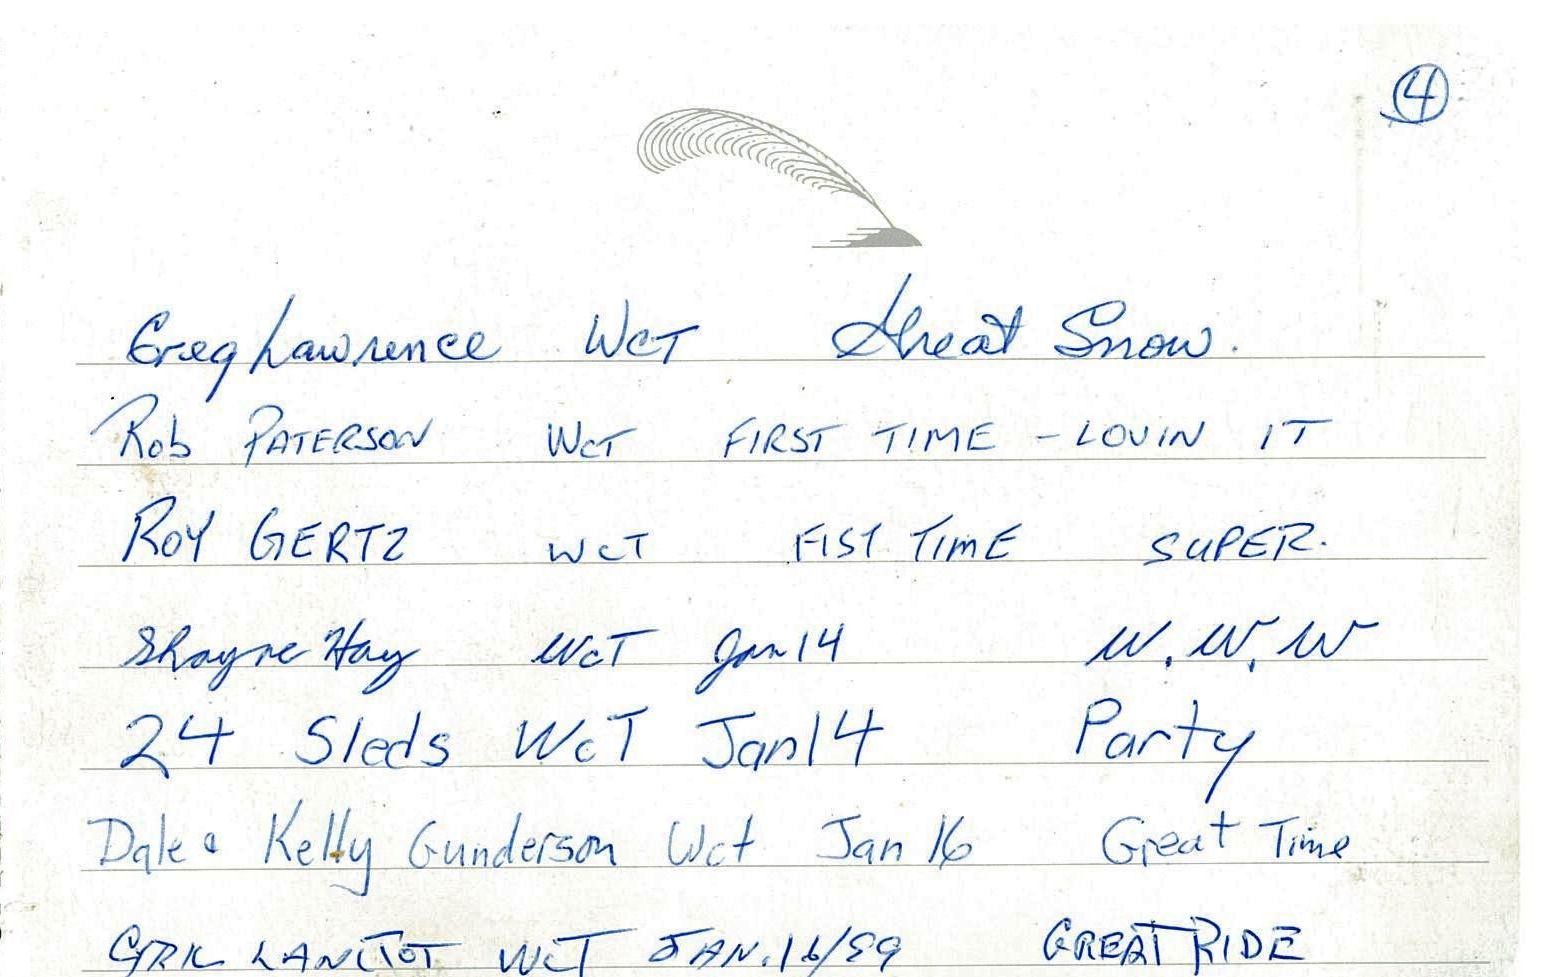 4
Greg Lawrence WCT Great Snow.
Rob PATERSON WCT FIRST TIME - LOVIN IT
ROY GERTZ WCT FIST TIME SUPER.
Shayne Hay WCT Jan 14 W.W.W
24 Sleds WCT Jan 14 Party
Dale & Kelly Gunderson Wct Jan 16 Great Time
LANCTOT WCT JAN.16/99 GREAT RIDE